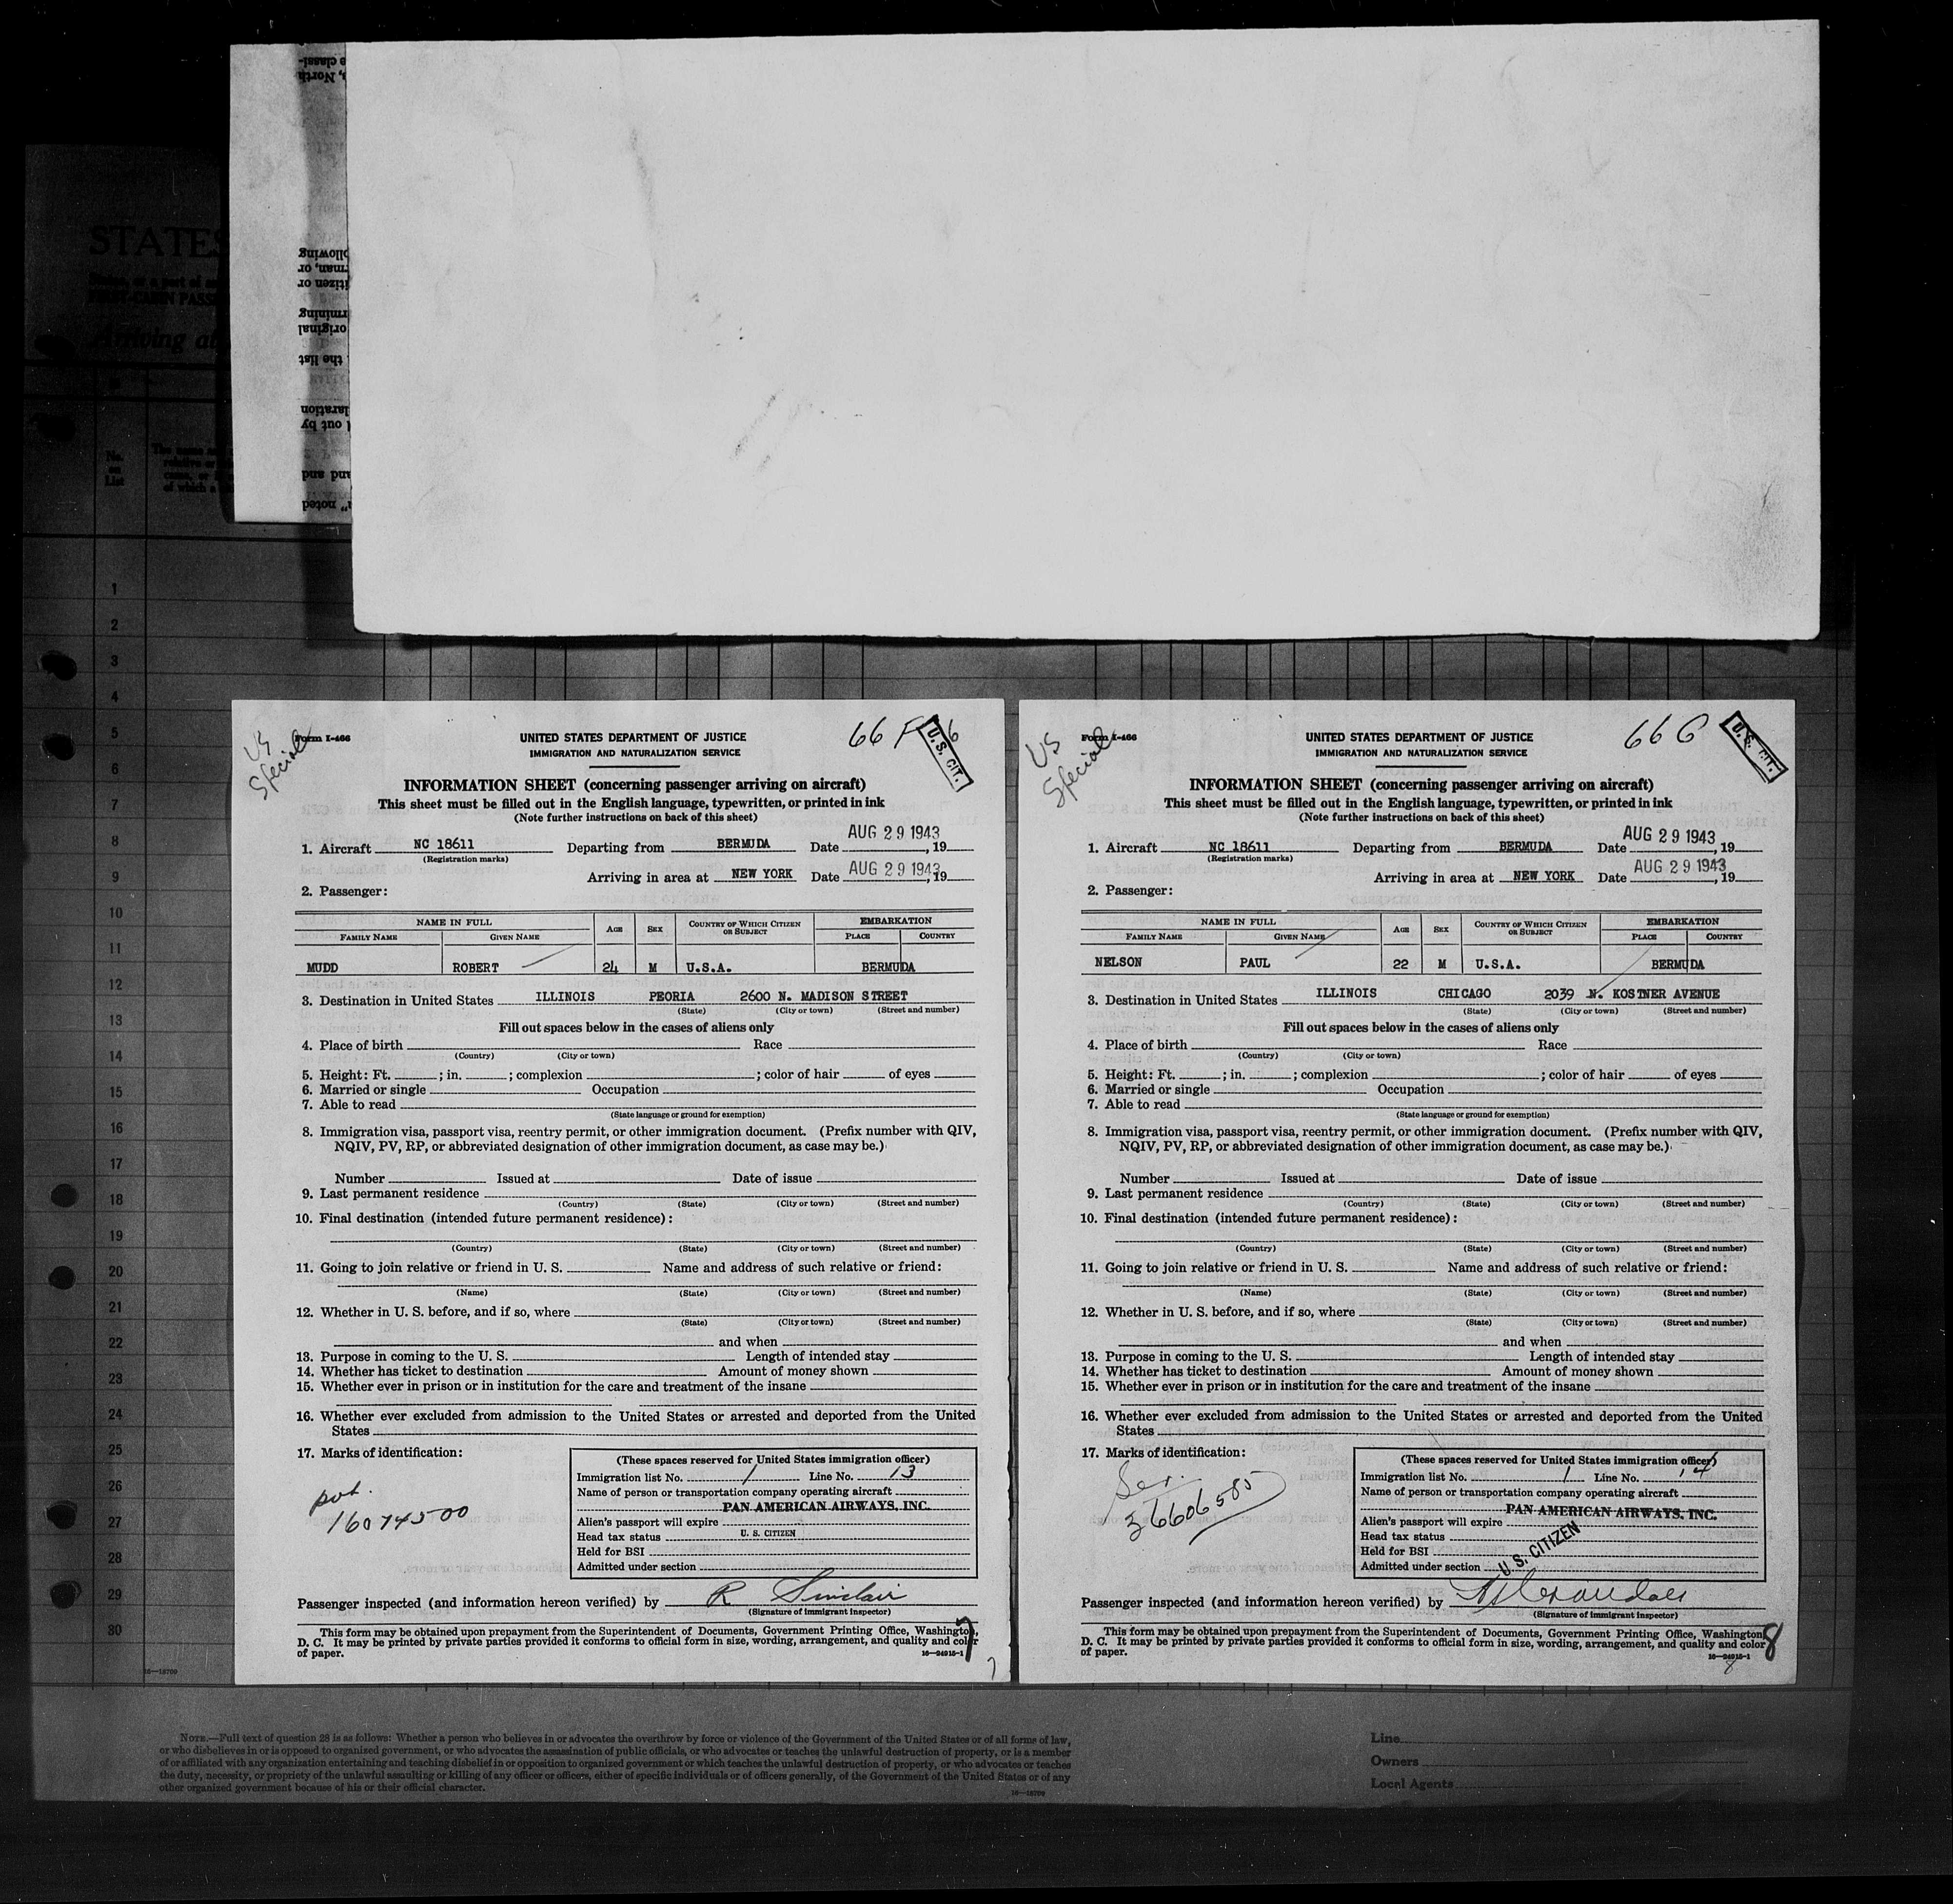 STATES
Arriving at
No.
on
List
1
2
3
4
5
6
7
8
9
10
11
12
13
14
15
16
17
18
19
20
21
22
23
24
25
26
27
28
29
30
US
Special
Form I-466
66 F
6
U. S. CIT.
UNITED STATES DEPARTMENT OF JUSTICE
IMMIGRATION AND NATURALIZATION SERVICE
INFORMATION SHEET (concerning passenger arriving on aircraft)
This sheet must be filled out in the English language, typewritten, or printed in ink
(Note further instructions on back of this sheet)
1. Aircraft NC 18611 Departing from BERMUDA Date AUG 29 1943, 19
(Registration marks)
Arriving in area at NEW YORK Date AUG 29 1943, 19
2. Passenger:
NAME IN FULL AGE SEX COUNTRY OF WHICH CITIZEN OR SUBJECT EMBARKATION
FAMILY NAME GIVEN NAME PLACE COUNTRY
MUDD ROBERT 24 M U.S.A. BERMUDA
3. Destination in United States ILLINOIS PEORIA 2600 N. MADISON STREET
(State) (City or town) (Street and number)
Fill out spaces below in the cases of aliens only
4. Place of birth Race
(Country) (City or town)
5. Height: Ft. ; in. ; complexion ; color of hair of eyes
6. Married or single Occupation
7. Able to read
(State language or ground for exemption)
8. Immigration visa, passport visa, reentry permit, or other immigration document. (Prefix number with QIV,
NQIV, PV, RP, or abbreviated designation of other immigration document, as case may be.)
Number Issued at Date of issue
9. Last permanent residence
(Country) (State) (City or town) (Street and number)
10. Final destination (intended future permanent residence):
(Country) (State) (City or town) (Street and number)
11. Going to join relative or friend in U. S. Name and address of such relative or friend:
(Name) (State) (City or town) (Street and number)
12. Whether in U. S. before, and if so, where
(State) (City or town) (Street and number)
and when
13. Purpose in coming to the U. S. Length of intended stay
14. Whether has ticket to destination Amount of money shown
15. Whether ever in prison or in institution for the care and treatment of the insane
16. Whether ever excluded from admission to the United States or arrested and deported from the United
States
17. Marks of identification:
16074500
(These spaces reserved for United States immigration officer)
Immigration list No. 1 Line No. 13
Name of person or transportation company operating aircraft
PAN AMERICAN AIRWAYS, INC.
Alien's passport will expire
Head tax status U. S. CITIZEN
Held for BSI
Admitted under section
Passenger inspected (and information hereon verified) by R Sinclair
(Signature of immigrant inspector)
This form may be obtained upon prepayment from the Superintendent of Documents, Government Printing Office, Washington,
D. C. It may be printed by private parties provided it conforms to official form in size, wording, arrangement, and quality and color
of paper.
16—24915-1
7
7
US
Special
Form I-466
66 G
U. S. CIT.
UNITED STATES DEPARTMENT OF JUSTICE
IMMIGRATION AND NATURALIZATION SERVICE
INFORMATION SHEET (concerning passenger arriving on aircraft)
This sheet must be filled out in the English language, typewritten, or printed in ink
(Note further instructions on back of this sheet)
1. Aircraft NC 18611 Departing from BERMUDA Date AUG 29 1943, 19
(Registration marks)
Arriving in area at NEW YORK Date AUG 29 1943, 19
2. Passenger:
NAME IN FULL AGE SEX COUNTRY OF WHICH CITIZEN OR SUBJECT EMBARKATION
FAMILY NAME GIVEN NAME PLACE COUNTRY
NELSON PAUL 22 M U.S.A. BERMUDA
3. Destination in United States ILLINOIS CHICAGO 2039 N. KOSTNER AVENUE
(State) (City or town) (Street and number)
Fill out spaces below in the cases of aliens only
4. Place of birth Race
(Country) (City or town)
5. Height: Ft. ; in. ; complexion ; color of hair of eyes
6. Married or single Occupation
7. Able to read
(State language or ground for exemption)
8. Immigration visa, passport visa, reentry permit, or other immigration document. (Prefix number with QIV,
NQIV, PV, RP, or abbreviated designation of other immigration document, as case may be.)
Number Issued at Date of issue
9. Last permanent residence
(Country) (State) (City or town) (Street and number)
10. Final destination (intended future permanent residence):
(Country) (State) (City or town) (Street and number)
11. Going to join relative or friend in U. S. Name and address of such relative or friend:
(Name) (State) (City or town) (Street and number)
12. Whether in U. S. before, and if so, where
(State) (City or town) (Street and number)
and when
13. Purpose in coming to the U. S. Length of intended stay
14. Whether has ticket to destination Amount of money shown
15. Whether ever in prison or in institution for the care and treatment of the insane
16. Whether ever excluded from admission to the United States or arrested and deported from the United
States
17. Marks of identification:
Ser.
36606585
(These spaces reserved for United States immigration officer)
Immigration list No. 1 Line No. 14
Name of person or transportation company operating aircraft
PAN AMERICAN AIRWAYS, INC.
Alien's passport will expire
Head tax status
Held for BSI
Admitted under section U. S. CITIZEN
Passenger inspected (and information hereon verified) by
(Signature of immigrant inspector)
This form may be obtained upon prepayment from the Superintendent of Documents, Government Printing Office, Washington,
D. C. It may be printed by private parties provided it conforms to official form in size, wording, arrangement, and quality and color
of paper.
16—24915-1
8
8
16—18709
NOTE.—Full text of question 28 is as follows: Whether a person who believes in or advocates the overthrow by force or violence of the Government of the United States or of all forms of law,
or who disbelieves in or is opposed to organized government, or who advocates the assassination of public officials, or who advocates or teaches the unlawful destruction of property, or is a member
of or affiliated with any organization entertaining and teaching disbelief in or opposition to organized government or which teaches the unlawful destruction of property, or who advocates or teaches
the duty, necessity, or propriety of the unlawful assaulting or killing of any officer or officers, either of specific individuals or of officers generally, of the Government of the United States or of any
other organized government because of his or their official character.
16—18709
Line
Owners
Local Agents